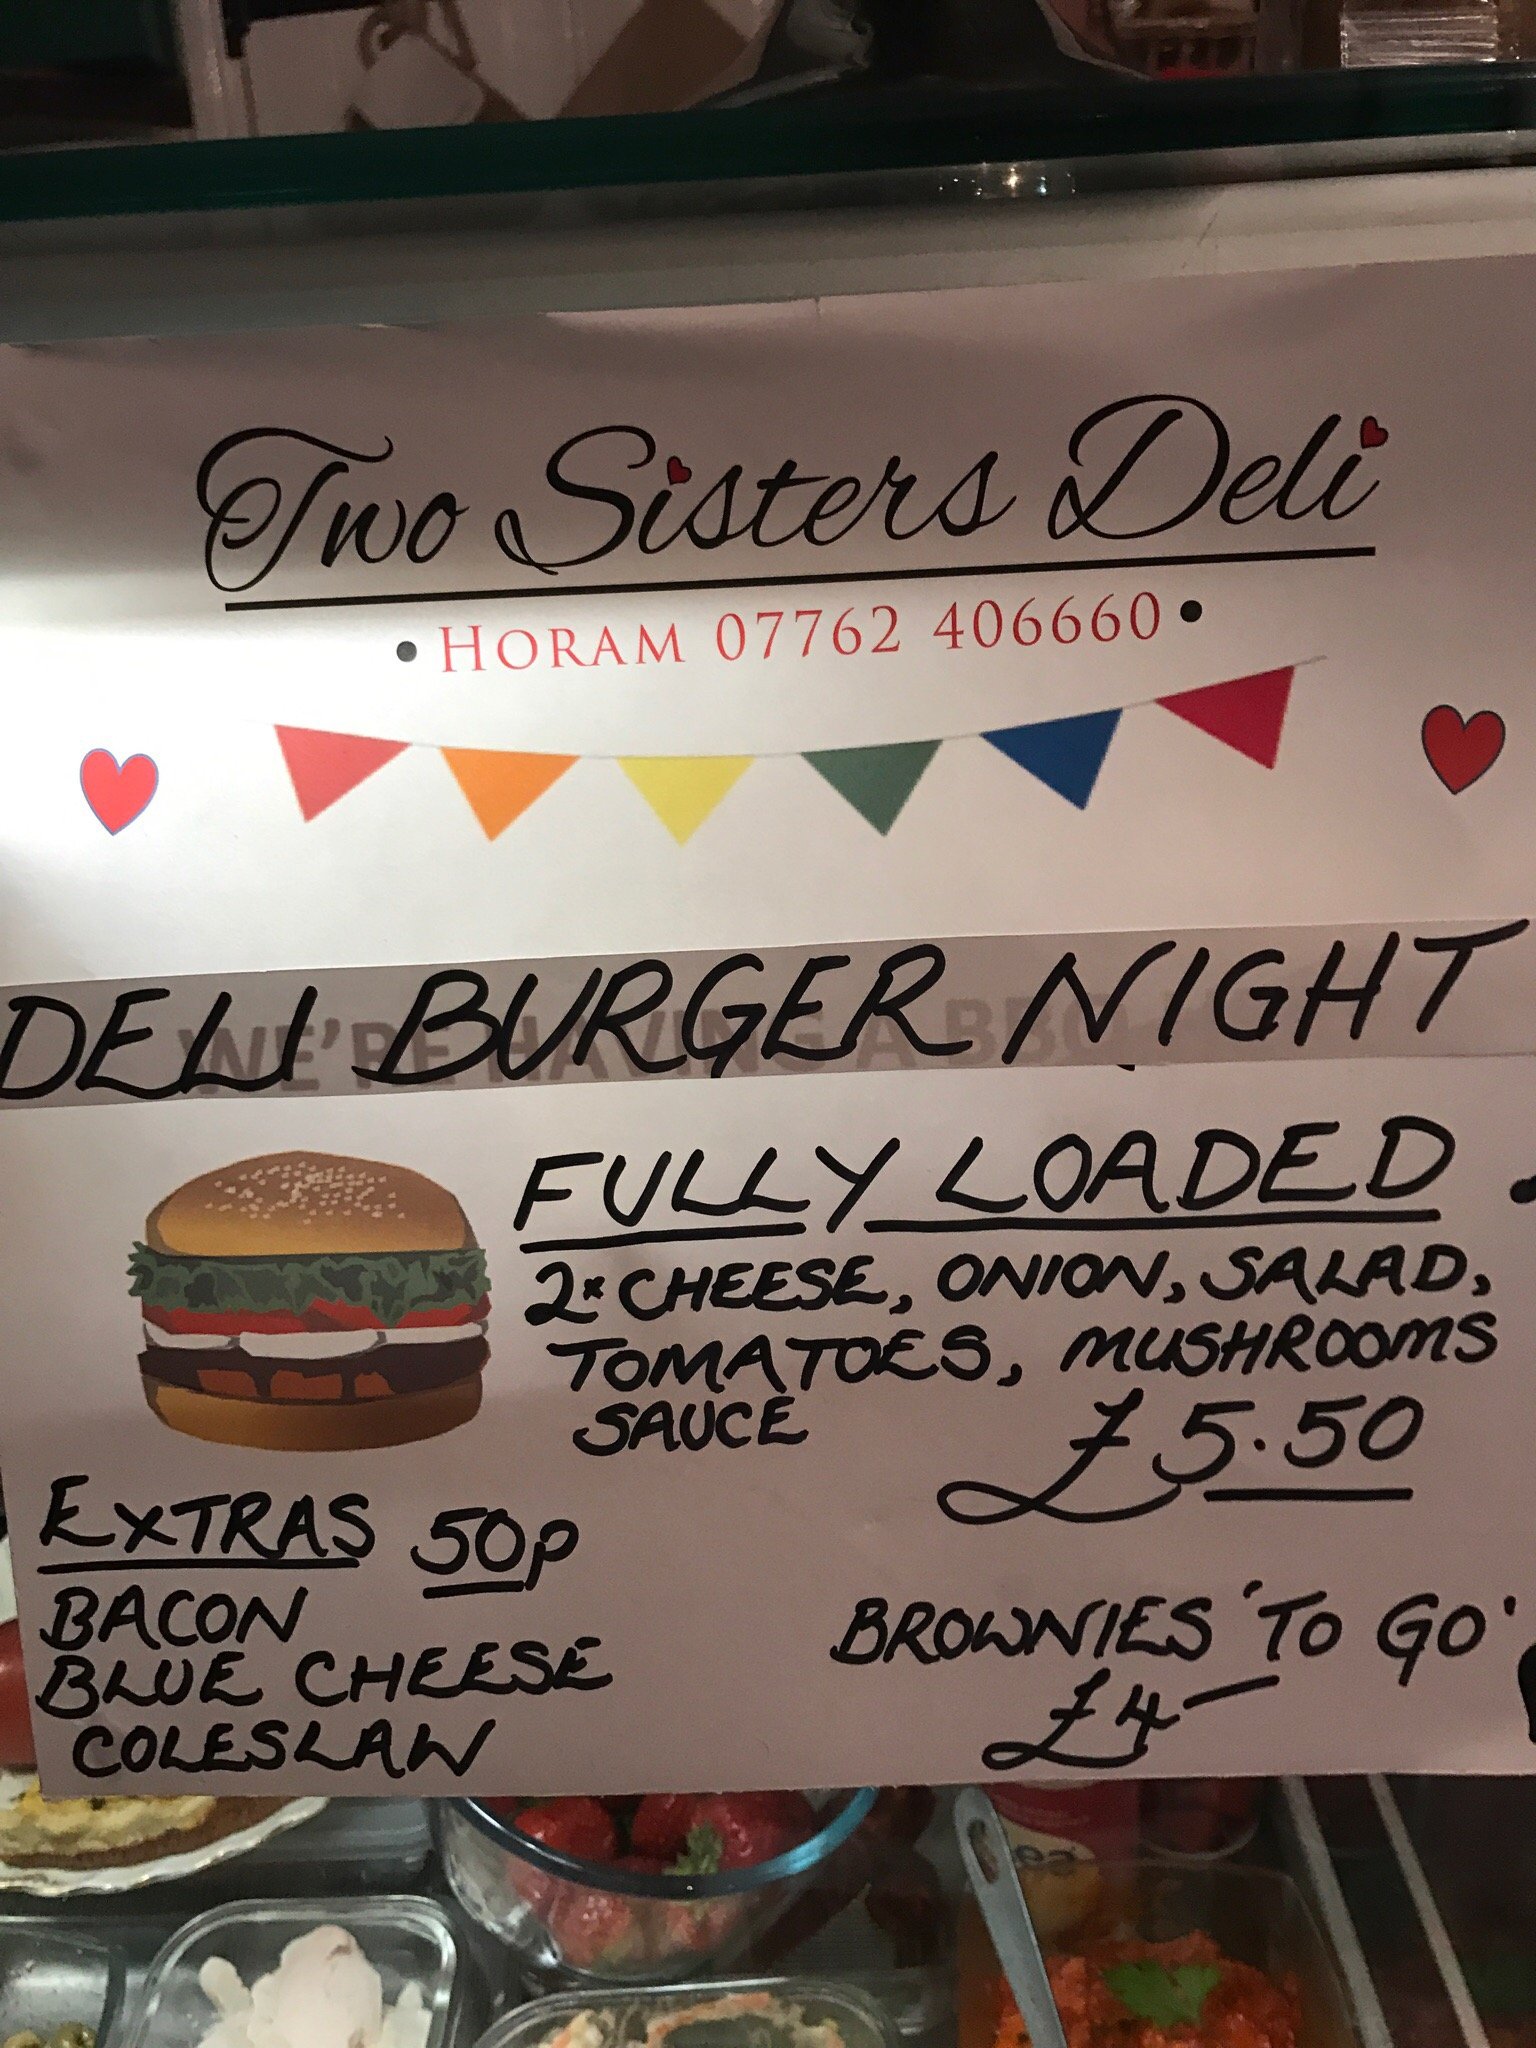 Two Sisters Deli
• HORAM 07762 406660 •
DELI BURGER NIGHT
WE'RE HAVING A BBQ
FULLY LOADED
2x CHEESE, ONION, SALAD,
TOMATOES, MUSHROOMS
SAUCE
£5.50
EXTRAS 50p
BACON
BLUE CHEESE
COLESLAW
BROWNIES 'TO GO'
£4-